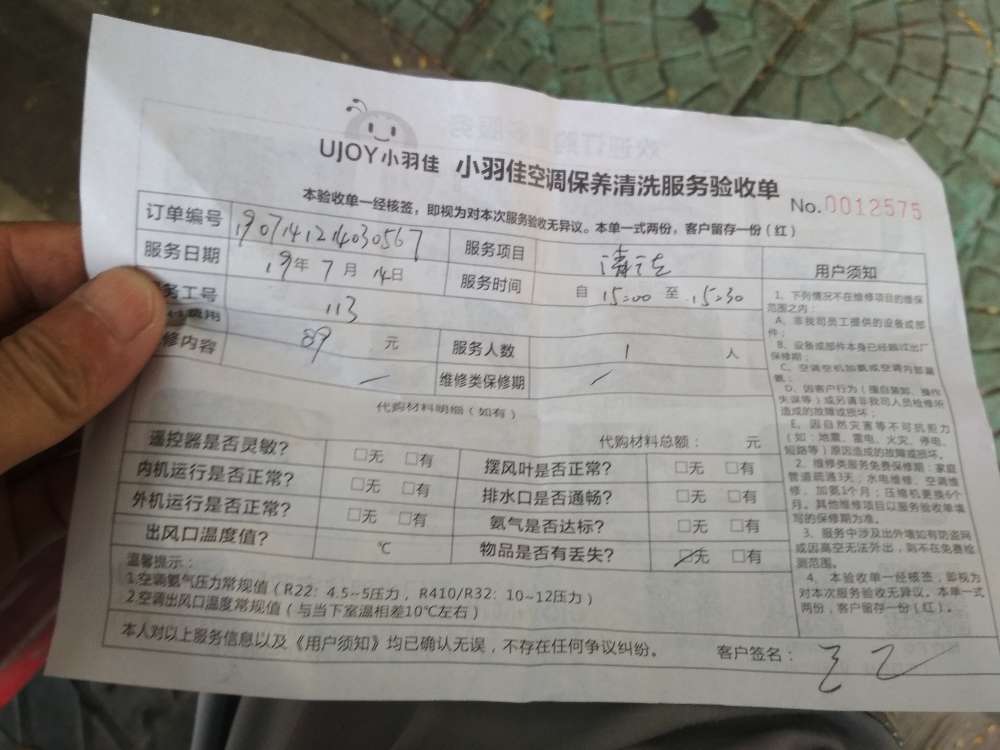 UJOY小羽佳 小羽佳空调保养清洗服务验收单
No.0012575
本验收单一经核签，即视为对本次服务验收无异议。本单一式两份，客户留存一份（红）
订单编号 1907141214030567 服务项目 清洁
服务日期 19年7月14日 服务时间 自 15:00 至 15:30
务工号 113
费用 89 元 服务人数 1 人
修内容 维修类保修期
代购材料明细（如有）
代购材料总额： 元
遥控器是否灵敏？ □无 □有 摆风叶是否正常？ □无 □有
内机运行是否正常？ □无 □有 排水口是否通畅？ □无 □有
外机运行是否正常？ □无 □有 氨气是否达标？ □无 □有
出风口温度值？ ℃ 物品是否有丢失？ □无 □有
温馨提示：
1.空调氨气压力常规值（R22：4.5~5压力，R410/R32：10~12压力）
2.空调出风口温度常规值（与当下室温相差10℃左右）
本人对以上服务信息以及《用户须知》均已确认无误，不存在任何争议纠纷。 客户签名：
用户须知
1、下列情况不在维修项目的维保
范围之内：
A、非我司员工提供的设备或部
件；
B、设备或部件本身已经超过出厂
保修期；
C、空调空机加氨或空调内部漏
氨；
D、因客户行为（擅自装卸、操作
失误等）或另请非我司人员检修所
造成的故障或损坏；
E、因自然灾害等不可抗拒力
（如：地震、雷电、火灾、停电、
短路等）原因造成的故障或损坏。
2、维修类服务免费保修期：家庭
管道疏通3天；水电维修、空调维
修、加氨1个月；压缩机更换6个
月。其他维修项目以服务验收单填
写的保修期为准。
3、服务中涉及出外墙如有防盗网
或因高空无法外出，则不在免费检
测范围。
4、本验收单一经核签，即视为
对本次服务验收无异议。本单一式
两份，客户留存一份（红）。